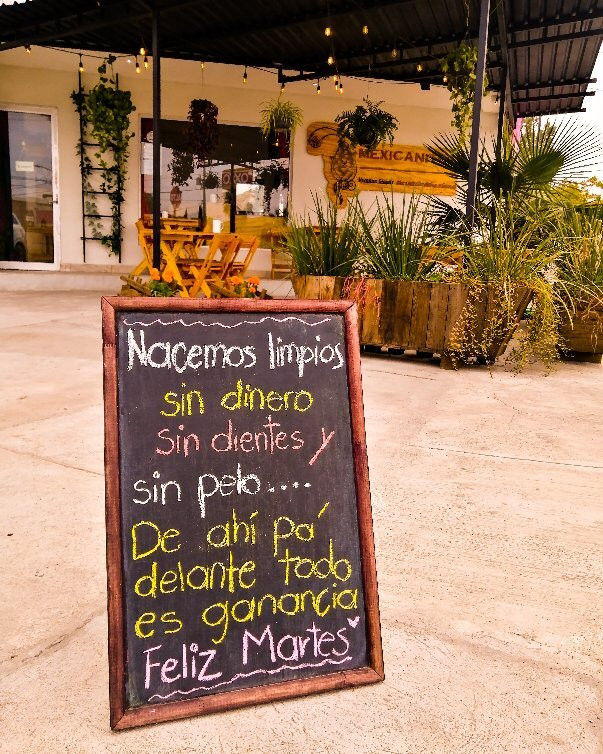 MEXICANI
Nacemos limpios
sin dinero
sin dientes y
sin pelo....
De ahí pá
delante todo
es ganancia
Feliz Martes